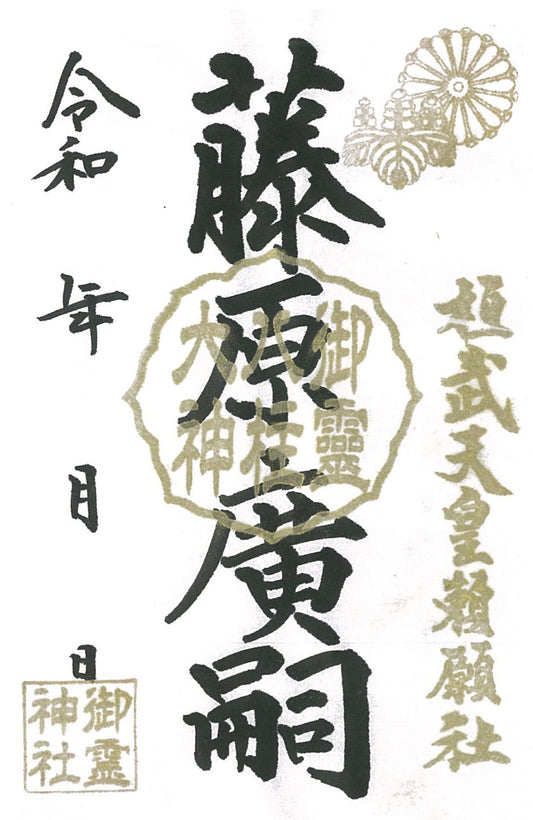 桓武天皇賴願社
藤原廣嗣
御靈
八社
大神
令和 年 月 日
御霊
神社